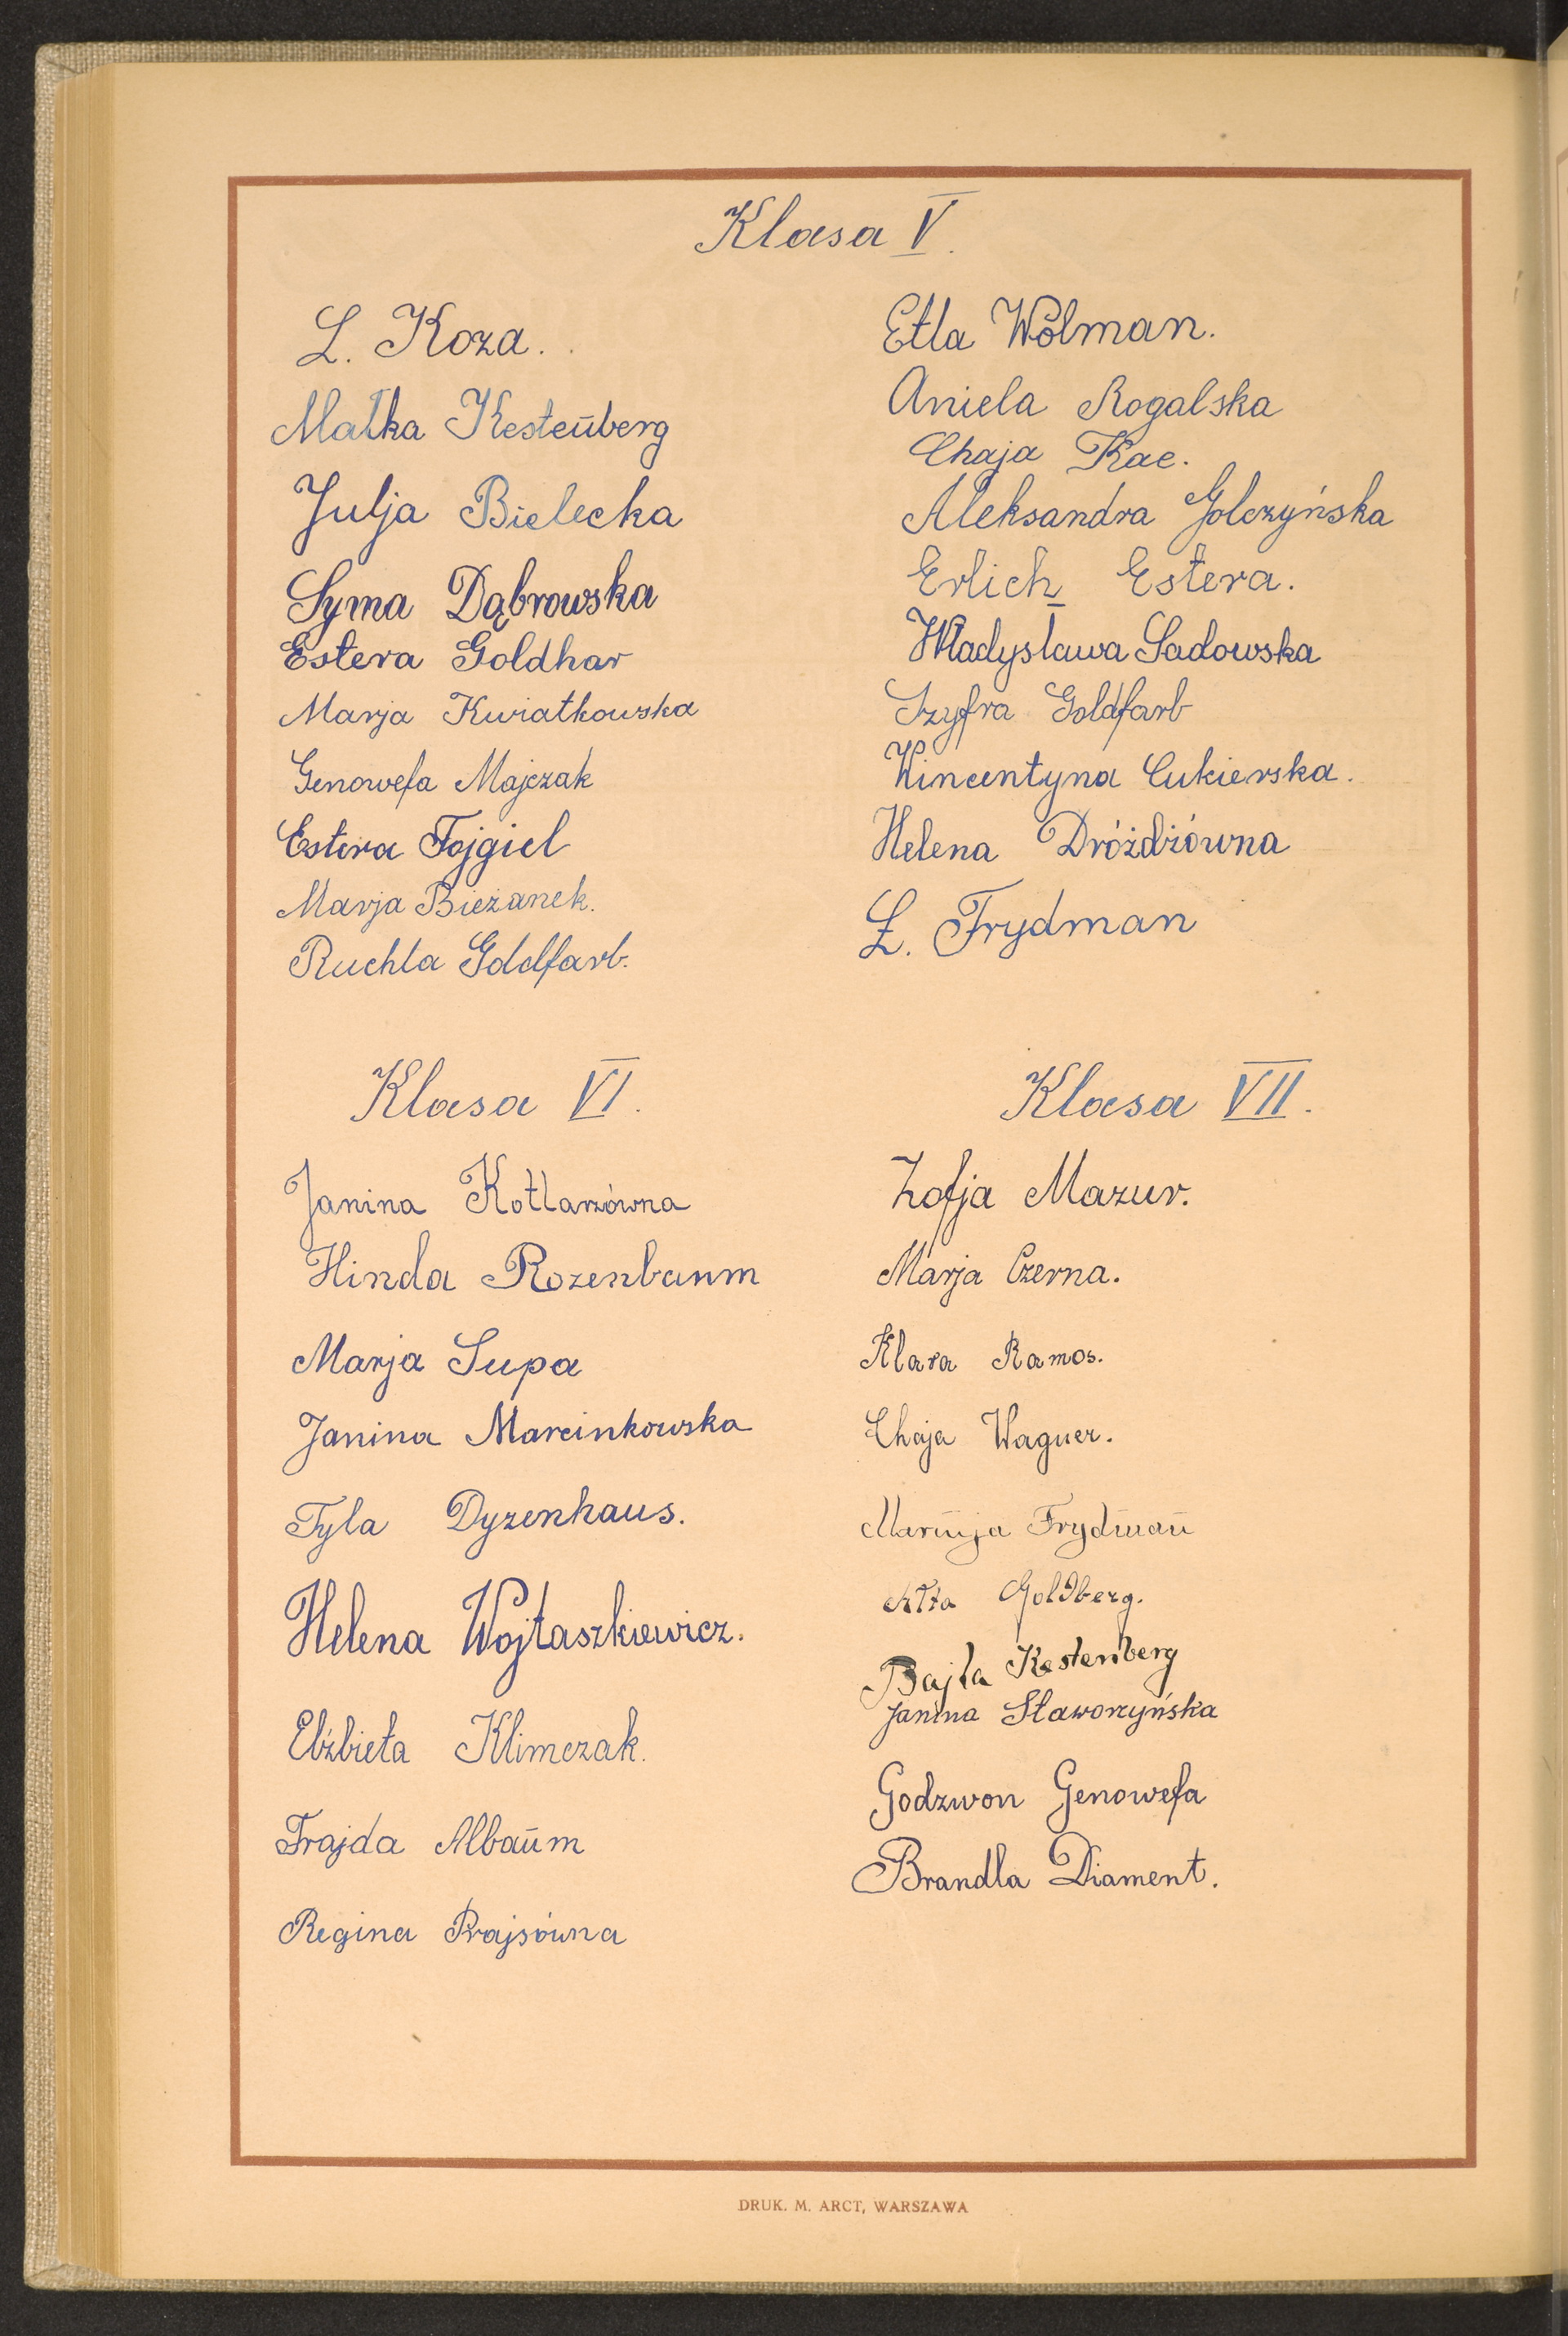 Klasa V.
L. Koza.
Małka Kestenberg
Julja Bielecka
Syma Dąbrowska
Estera Goldhar
Marja Kwiatkowska
Genowefa Majczak
Estera Fojgiel
Marja Bieżanek.
Ruchla Goldfarb.
Etla Wolman.
Aniela Rogalska
Chaja Kac.
Aleksandra Golczyńska
Erlich Estera.
Władysława Sadowska
Szyfra Goldfarb
Wincentyna Cukierska.
Helena Dróżdżówna
Ł. Frydman
Klasa VI.
Janina Kotlarzówna
Hinda Rozenbaum
Marja Supa
Janina Marcinkowska
Tyla Dyzenhaus.
Helena Wojtaszkiewicz.
Elżbieta Klimczak.
Frajda Albaum
Regina Prajsówna
Klasa VII.
Zofja Mazur.
Marja Czerna.
Klara Ramos.
Chaja Wagner.
Frydman
Goldberg.
Bajla Kestenberg
Janina Staworzyńska
Godzwon Genowefa
Brandla Diament.
DRUK. M. ARCT, WARSZAWA